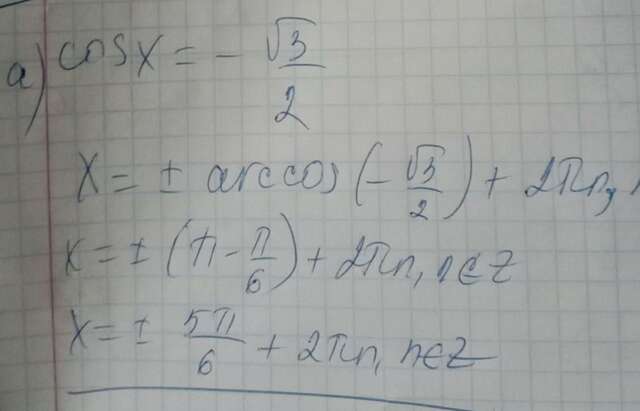 а) cos x = - √3/2
x = ± arccos (- √3/2) + 2πn,
x = ± (π - π/6) + 2πn, n∈Z
x = ± 5π/6 + 2πn, n∈Z